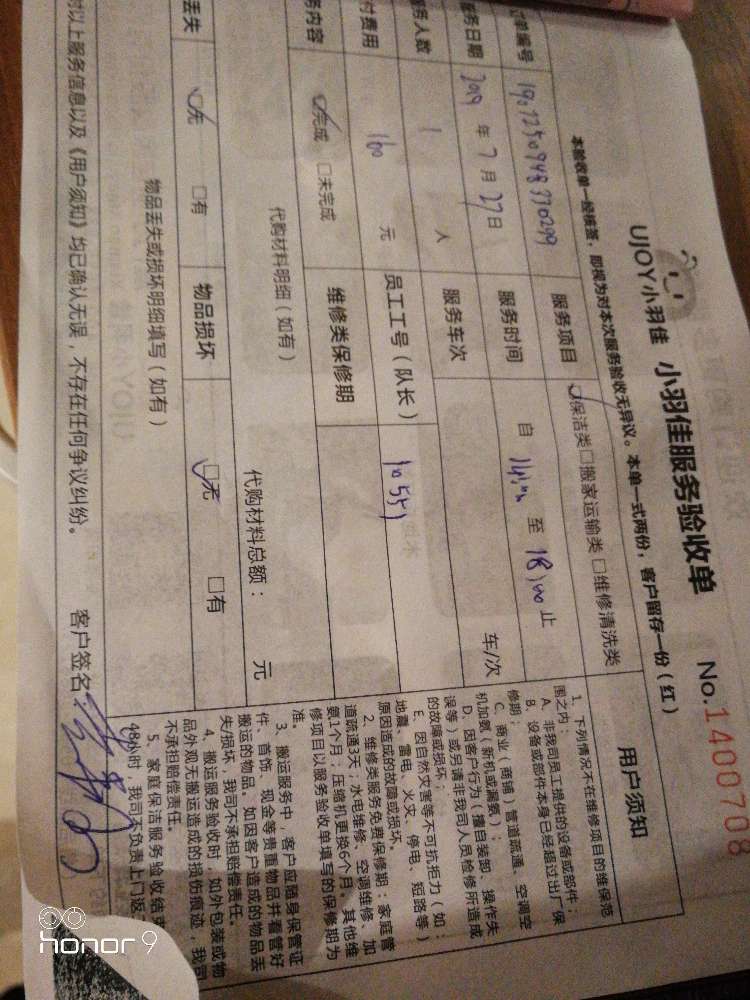 UJOY小羽佳 小羽佳服务验收单 No.1400708
本验收单一经核签，即视为对本次服务验收无异议。本单一式两份，客户留存一份（红）
单编号 1907250948370299 服务项目 保洁类 □搬家运输类 □维修清洗类
服务日期 2019 年 7 月 27 日 服务时间 自 14:00 至 18:00 止
务人数 1 人 服务车次 车/次
付费用 160 元 员工工号（队长） 10551
务内容 完成 □未完成 维修类保修期
代购材料明细（如有） 代购材料总额： 元
丢失 无 □有 物品损坏 无 □有
物品丢失或损坏明细填写（如有）
对以上服务信息以及《用户须知》均已确认无误，不存在任何争议纠纷。 客户签名
用户须知
1、下列情况不在维修项目的维保范
围之内：
A、非我司员工提供的设备或部件；
B、设备或部件本身已经超过出厂保
修期；
C、商业（商铺）管道疏通、空调空
机加氨（新机或漏氨）；
D、因客户行为（擅自装卸、操作失
误等）或另请非我司人员检修所造成
的故障或损坏；
E、因自然灾害等不可抗拒力（如：
地震、雷电、火灾、停电、短路等）
原因造成的故障或损坏。
2、维修类服务免费保修期：家庭管
道疏通3天；水电维修、空调维修、加
氨1个月；压缩机更换6个月。其他维
修项目以服务验收单填写的保修期为
准。
3、搬运服务中，客户应随身保管证
件、首饰、现金等贵重物品并看管好
搬运的物品，如因客户造成的物品丢
失/损坏，我司不承担赔偿责任。
4、搬运服务验收时，如外包装或物
品外观无搬运造成的损伤痕迹，我司
不承担赔偿责任。
5、家庭保洁服务验收结束
48小时，我司不负责上门返
honor 9